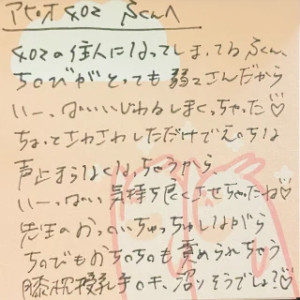 アピオ402 ふくんへ
402の住人になってしまってるふくん、
ち○びがとっても弱々さんだから
いーっぱいいじわるしまくっちゃった♡
ちょっとさわさわしただけでえ○ちな
声止まらなくなっちゃうから、
いーっぱい気持ち良くさせちゃったね♡
先生のおっ○いちゅっちゅしながら
ち○びもお○ち○ちも責められちゃう
膝枕授乳手○キ、沼りそうでしょ?♡